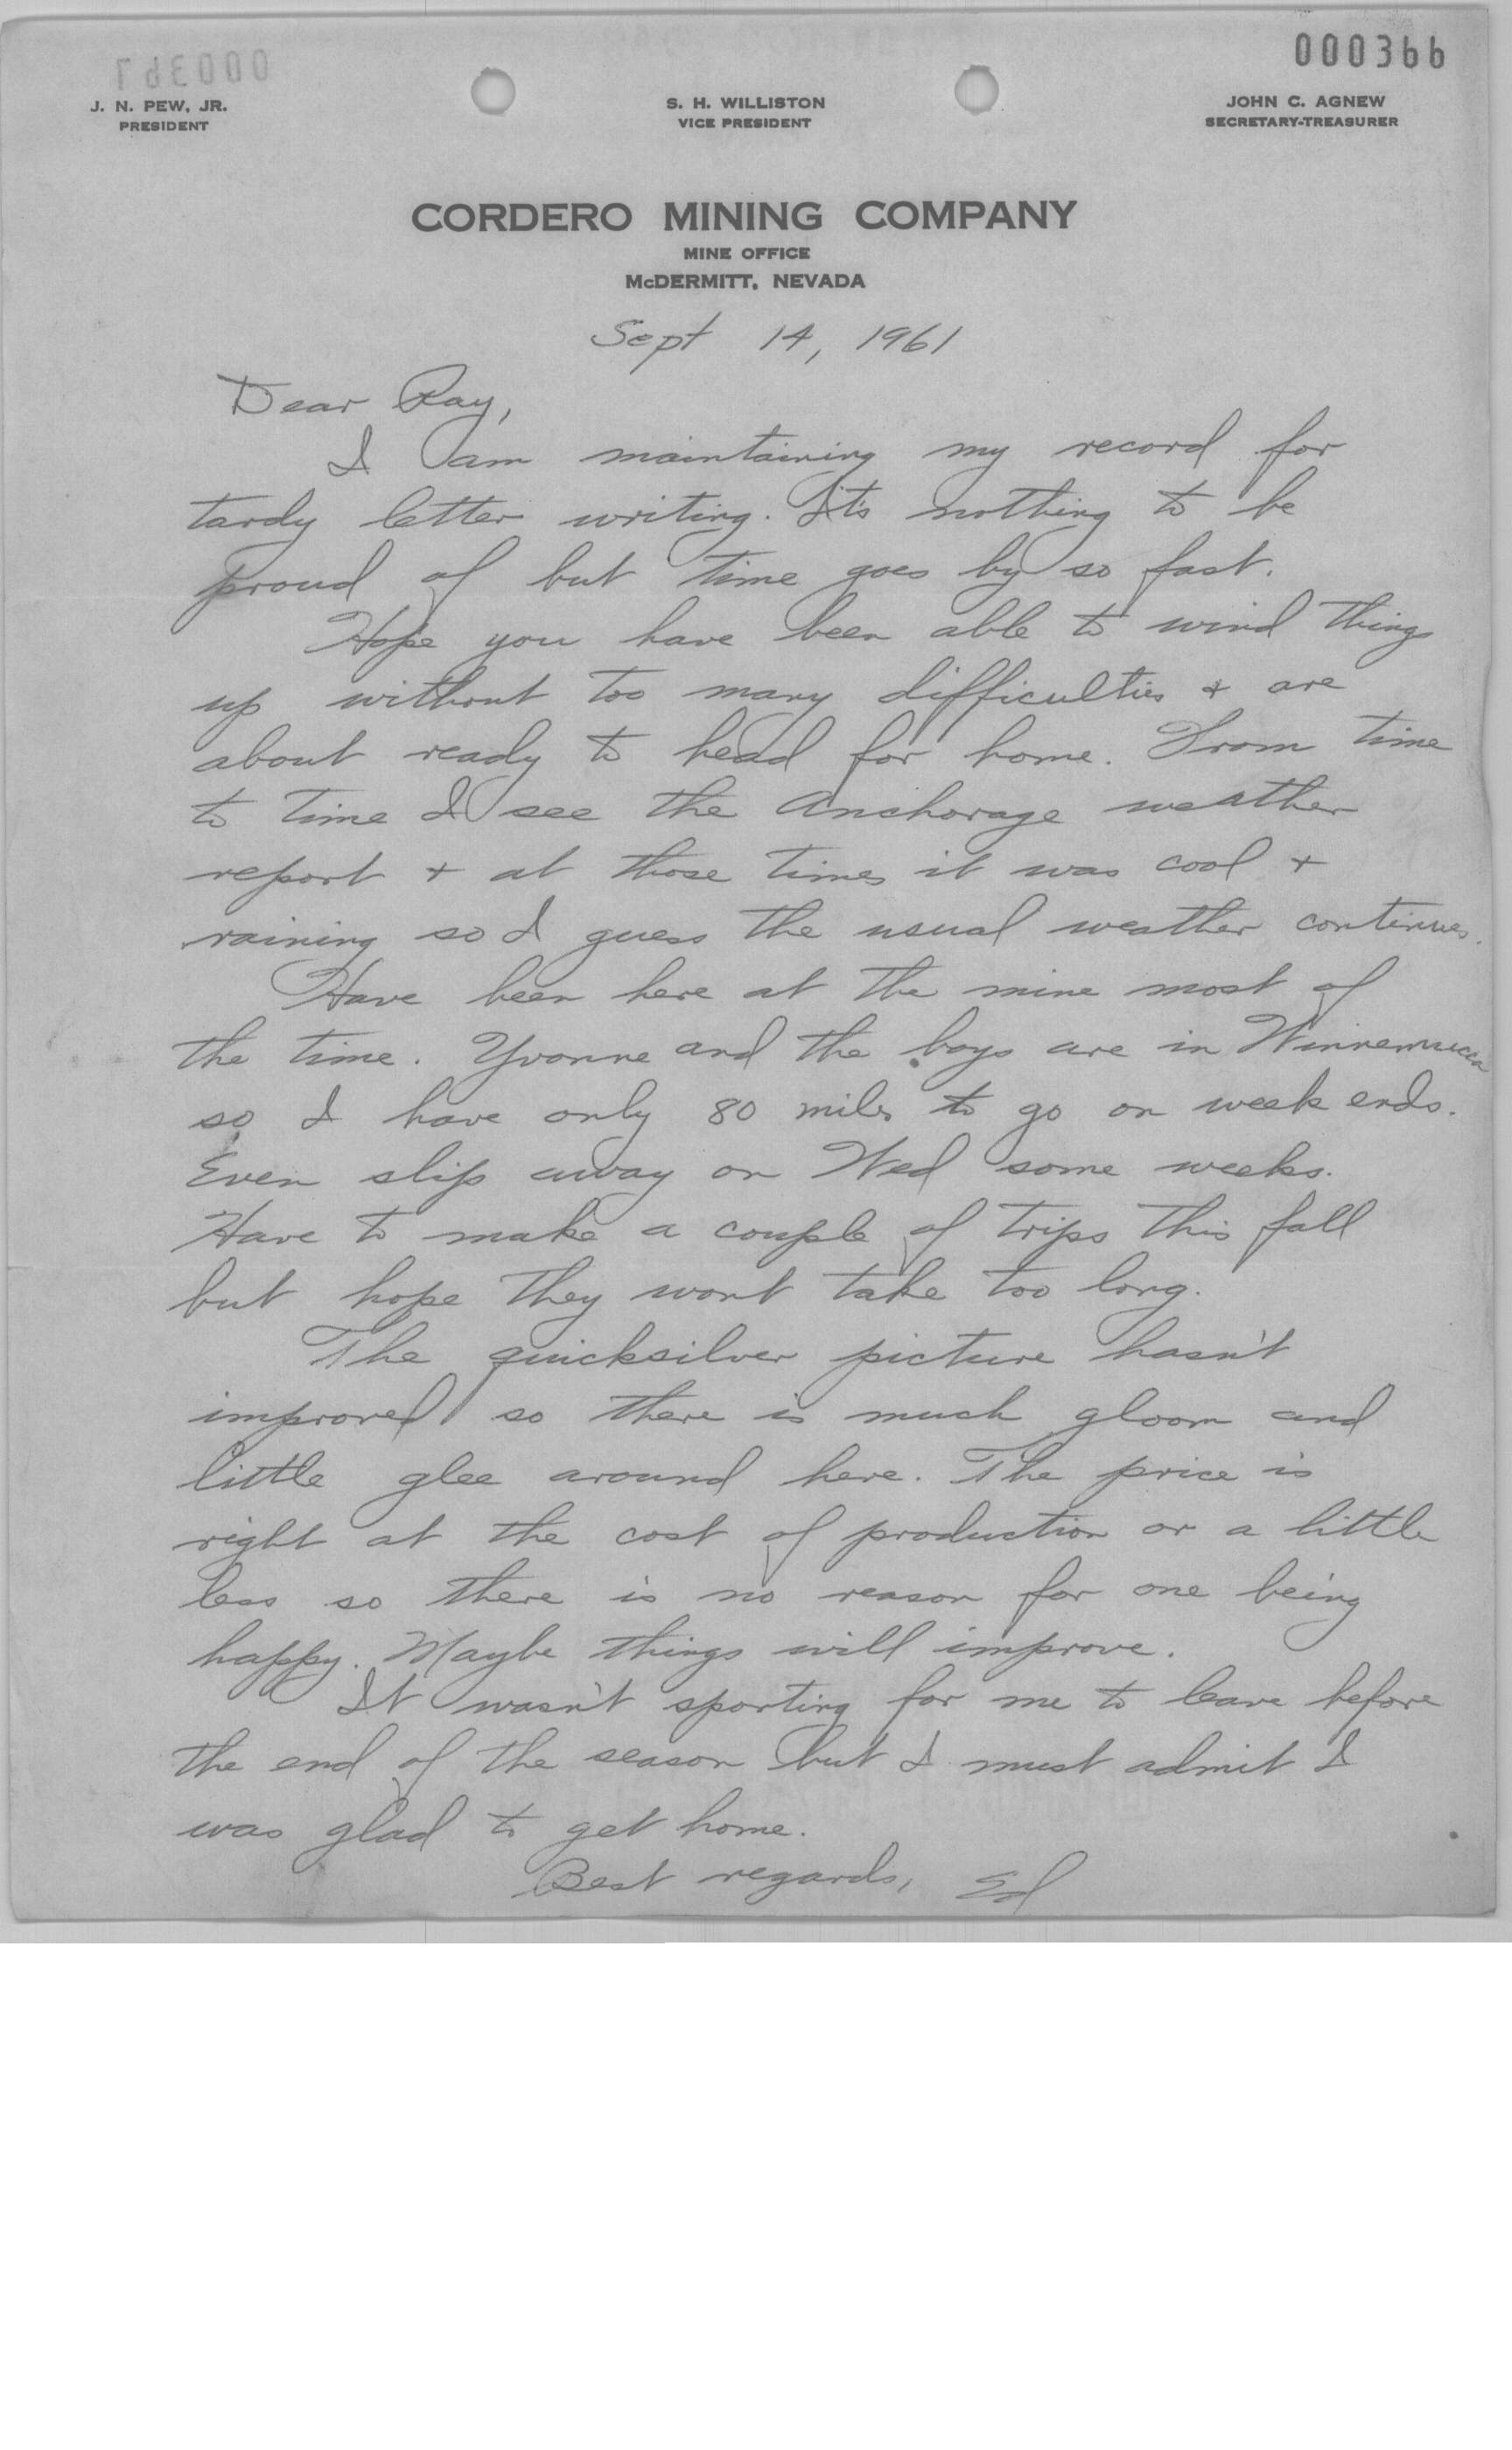 000367
000366
J. N. PEW, JR.
PRESIDENT
S. H. WILLISTON
VICE PRESIDENT
JOHN C. AGNEW
SECRETARY-TREASURER
CORDERO MINING COMPANY
MINE OFFICE
McDERMITT, NEVADA
Sept 14, 1961
Dear Ray,
I am maintaining my record for
tardy letter writing. It's nothing to be
proud of but time goes by so fast.
Hope you have been able to wind things
up without too many difficulties + are
about ready to head for home. From time
to time I see the Anchorage weather
report + at those times it was cool +
raining so I guess the usual weather continues.
Have been here at the mine most of
the time. Yvonne and the boys are in Winnemucca
so I have only 80 miles to go on week ends.
Even slip away on Wed some weeks.
Have to make a couple of trips this fall
but hope they wont take too long.
The quicksilver picture hasn't
improved so there is much gloom and
little glee around here. The price is
right at the cost of production or a little
less so there is no reason for one being
happy. Maybe things will improve.
It wasn't sporting for me to leave before
the end of the season but I must admit I
was glad to get home.
Best regards, Ed